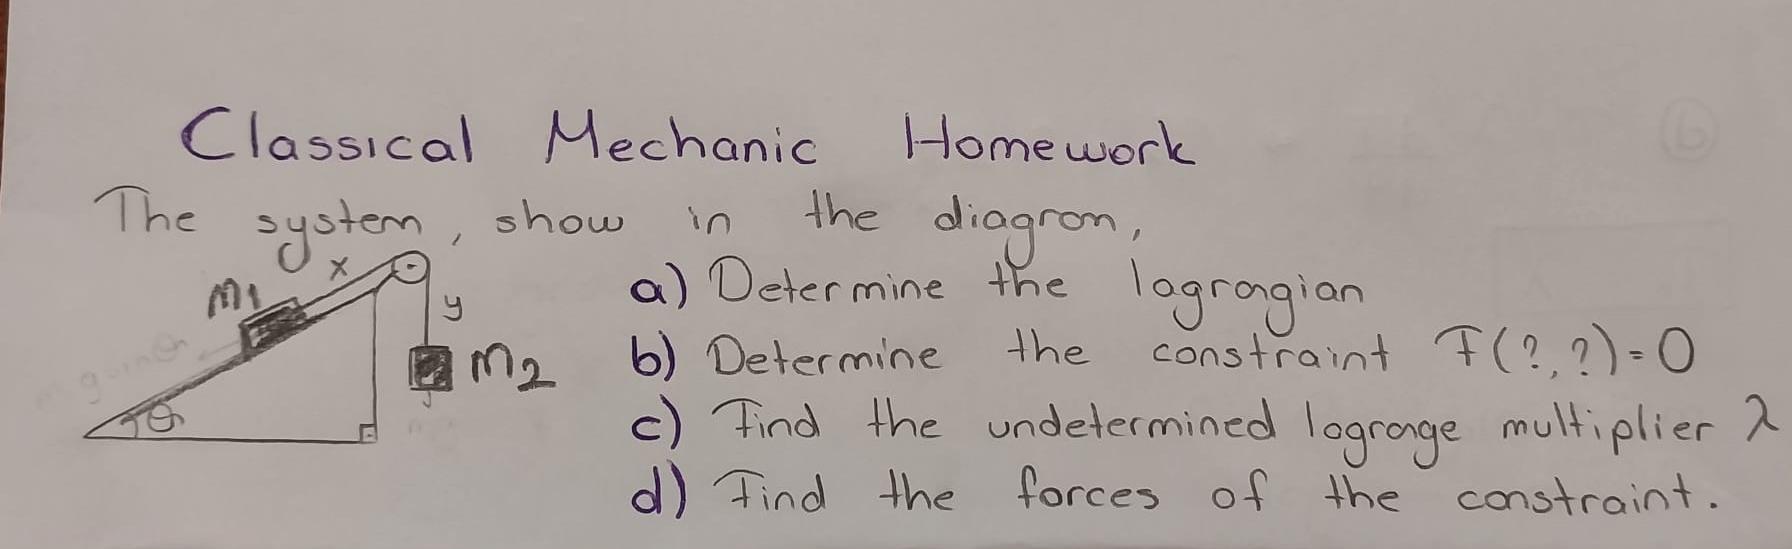 Classical Mechanic Homework
The system, show in the diagram,
x
m1
y
m2
θ
a) Determine the lagragian
b) Determine the constraint F(?,?)=0
c) Find the undetermined lagrange multiplier λ
d) Find the forces of the constraint.